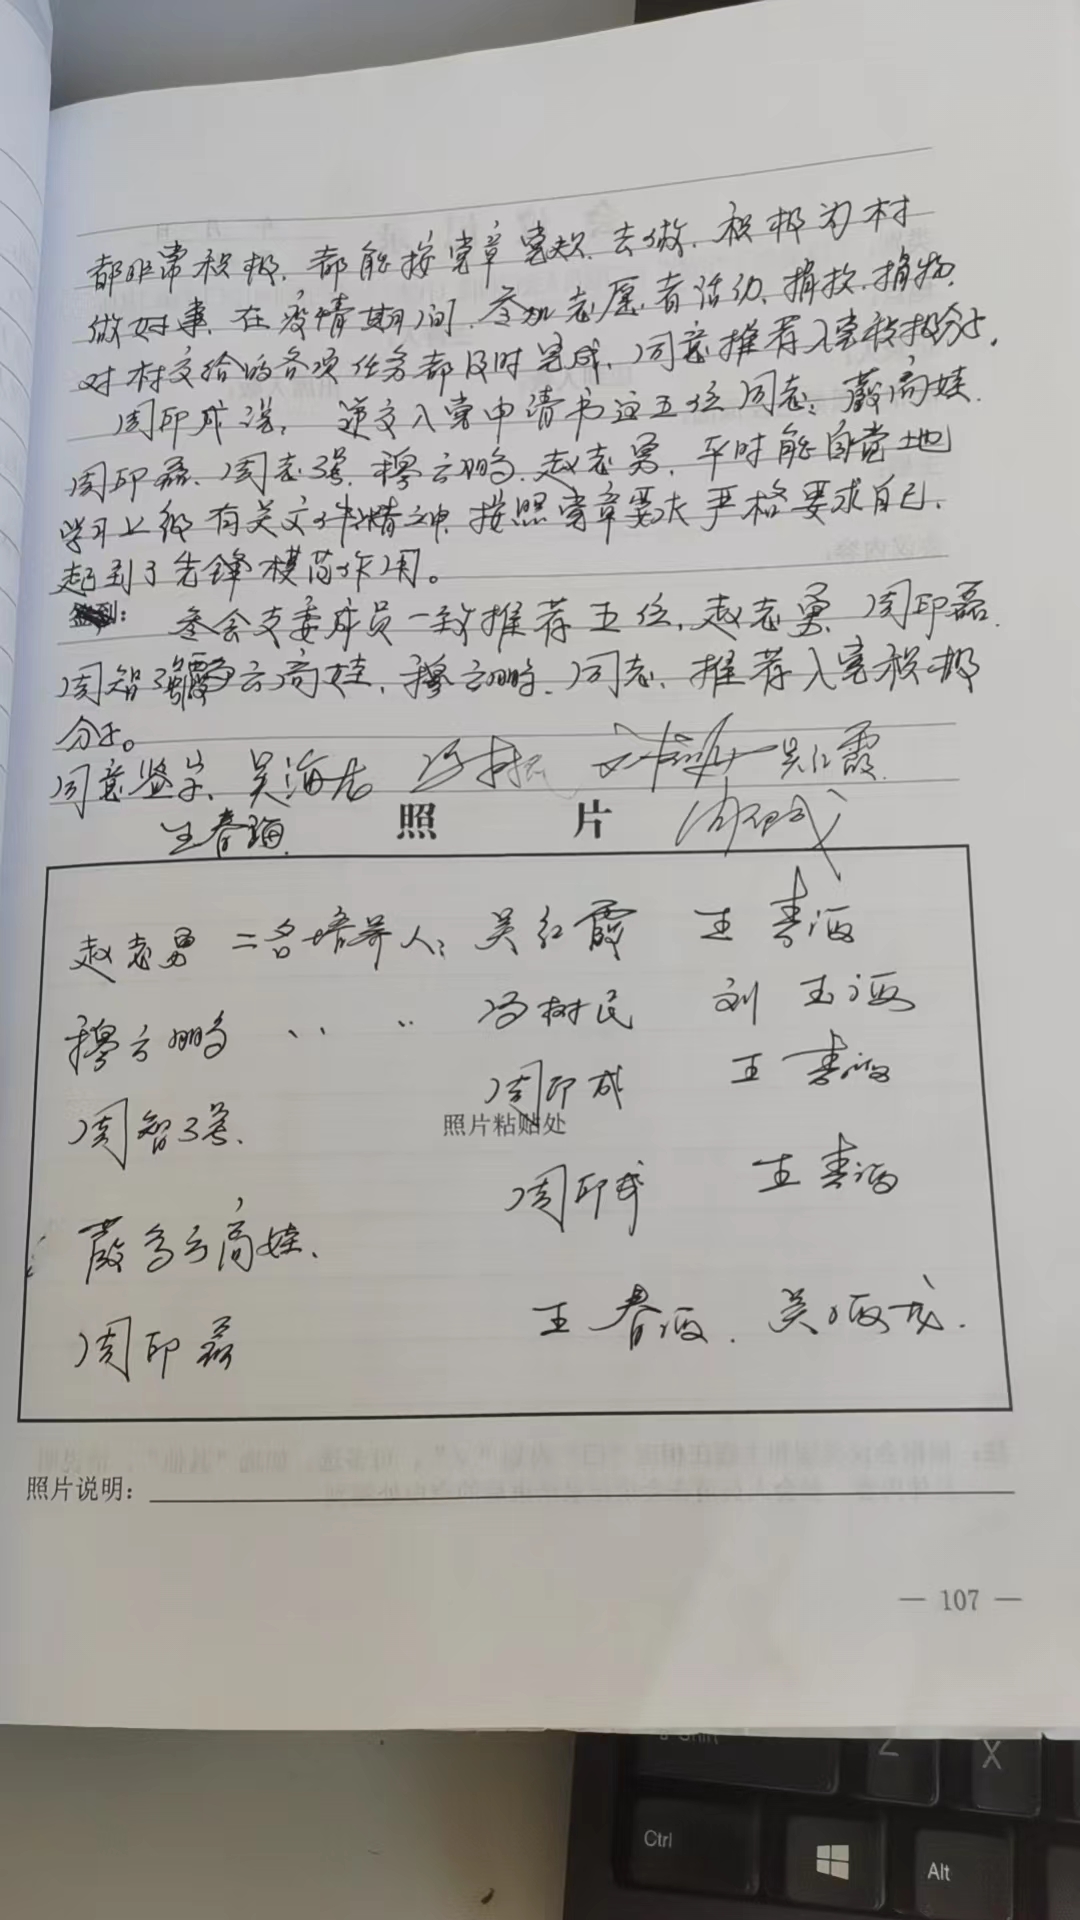 都非常积极,都能按党章党规去做,积极为村
做好事,在疫情期间,参加志愿者活动、捐款、捐物,
对村交给的各项任务都及时完成,同意推荐入党积极分子。
周印成说:递交入党申请书这五位同志:殷高娃、
周印磊、周志强、穆云鹏、赵志勇,平时能自觉地
学习上级有关文件精神,按照党章要求严格要求自己,
起到了先锋模范作用。
参会支委成员一致推荐五位,赵志勇、周印磊、
周智强、云高娃、穆云鹏、同志,推荐入党积极
分子。
同意签字、吴海龙 吴红霞
王春海 周印成
照 片
赵志勇 二名培养人: 吴红霞 王春海
穆云鹏 〃 〃 冯树民 刘玉海
周智强、 周印成 王春海
照片粘贴处
殷乌云高娃、 周印成 王春海
周印磊 王春海、吴海龙.
照片说明:
— 107 —
Shift Z X
Ctrl Alt